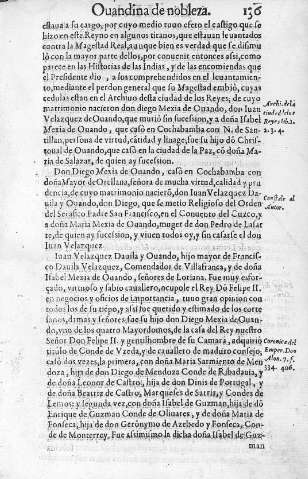 Ouandina de nobleza. 156
estaua a su cargo, por cuyo medio tuuo efeto el castigo que se
hizo en este Reyno en algunos tiranos, que estauan leuantados
contra la Magestad Real, aunque bien es verdad que se dissimu
lò con la mayor parte dellos, por conuenir entonces assi, como
parece en las Historias de las Indias, y de las encomiendas que
el Presidente dio, a los comprehendidos en el leuantamiento,
mediante el perdon general que su Magestad embiò, cuyas
cedulas estan en el Archiuo desta ciudad de los Reyes; de cuyo
matrimonio nacieron don Diego Mexia de Ouando, don Iuan
Velazquez de Ouando, que murió sin sucession, y a doña Isabel
Mexia de Ouando, que casó en Cochabamba con N. de San-
tillan, persona de virtud, caridad y linage, fue su hijo dō Chris-
toual de Ouando, que casò en la ciudad de la Paz, cō doña Ma-
ria de Salazar, de quien ay sucession.
Archi. de la
ciudad de los
Reyes lib.
2. 3. 4.
Don Diego Mexia de Ouando, casò en Cochabamba con
doña Mayor de Orellana, señora de mucha virtud, calidad y pru
dencia, de cuyo matrimonio naciero, don Iuan Velazquez Da-
uila y Ouando, don Diego, que se metio Religioso del Orden
del Serafico Padre San Francisco, en el Conuento del Cuzco, y
a doña Maria Mexia de Ouando, muger de don Pedro de Lasar
te, de quien ay sucession, y viuen todos oy, y sin casarse el don
Iuan Velazquez.
Constale al
Autor.
Iuan Velazquez Dauila y Ouando, hijo mayor de Francis-
co Dauila Velazquez, Comendador de Villafranca, y de doña
Isabel Mexia de Ouando, señores de Loriana. Fue muy esfor-
çado, virtuoso y sabio cauallero, ocupole el Rey Dō Felipe II.
en negocios y oficios de importancia, tuuo gran opinion con
todos los de su tiēpo, y assi fue querido y estimado de los corte
sanos, damas y señores: fue su hijo don Diego Mexia de Ouan-
do, vno de los quatro Mayordomos, de la casa del Rey nuestro
Señor Don Felipe II. y gentilhombre de su Camara, adquiriò
titulo de Conde de Vzeda, y de cauallero de maduro consejo,
casò dos vezes, la primera, con doña Maria Sarmiento de Men-
doza, hija de don Diego de Mendoza Conde de Ribadauia, y
de doña Leonor de Castro, hija de don Dinis de Portugal, y
de doña Beatriz de Castro, Marqueses de Sarria, y Condes de
Lemos: y segunda vez, con doña Isabel de Guzman, hija de dō
Enrique de Guzman Conde de Oliuares, y de doña Maria de
Fonseca, hija de don Geronymo de Azebedo y Fonseca, Con-
de de Monterrey. Fue assimismo la dicha doña Isabel de Guz-
Coronica del
Emper. Don
Alon. 7. f.
334. 406.
man